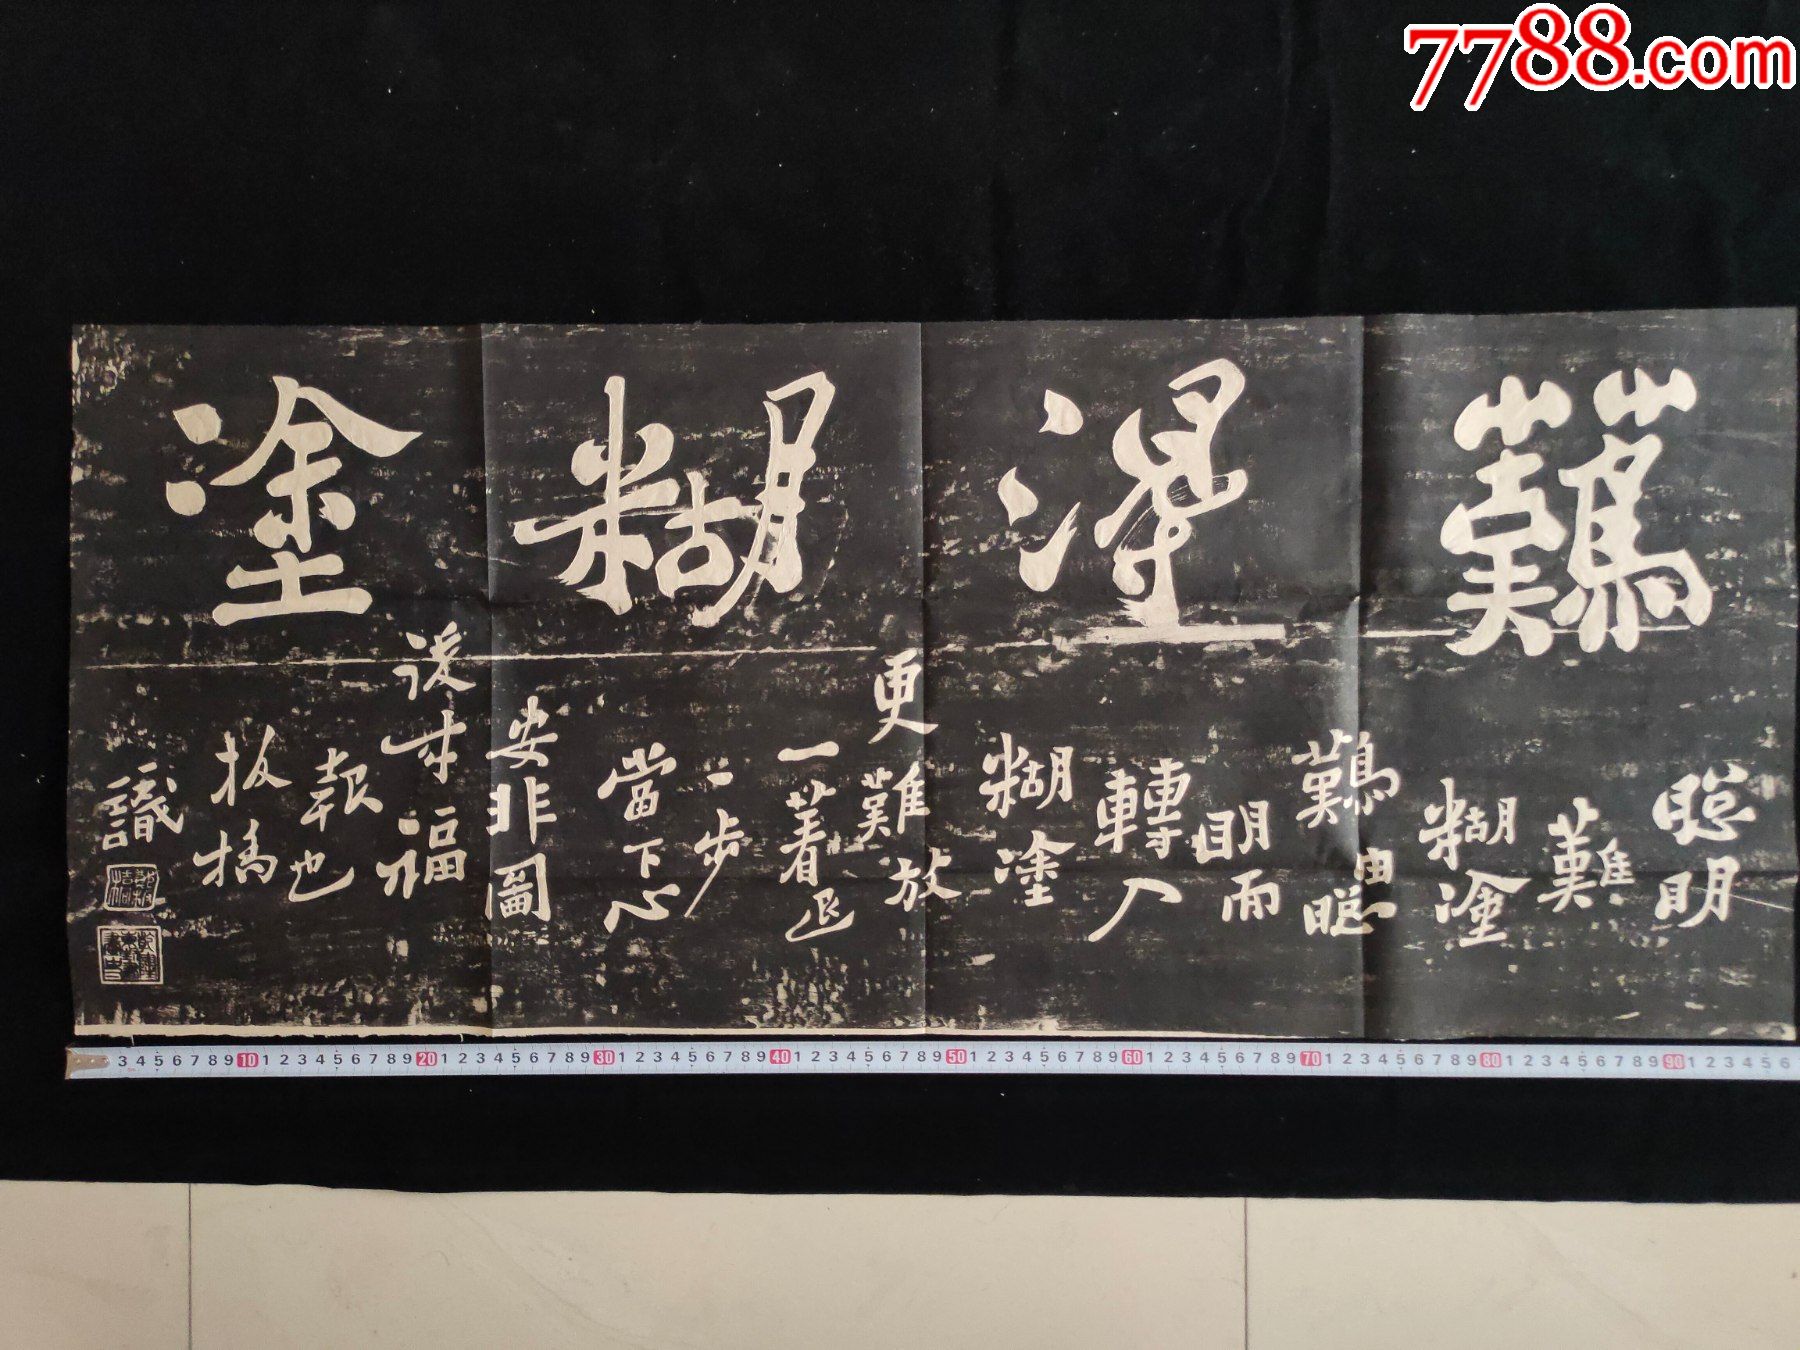 7788.com
難得糊塗
聰明
難
糊塗
難由聰
明而
轉入
糊塗
更難放
一著退
一步
當下心
安非圖
後來福
報也
板橋
識
3 4 5 6 7 8 9 10 1 2 3 4 5 6 7 8 9 20 1 2 3 4 5 6 7 8 9 30 1 2 3 4 5 6 7 8 9 40 1 2 3 4 5 6 7 8 9 50 1 2 3 4 5 6 7 8 9 60 1 2 3 4 5 6 7 8 9 70 1 2 3 4 5 6 7 8 9 80 1 2 3 4 5 6 7 8 9 90 1 2 3 4 5 6